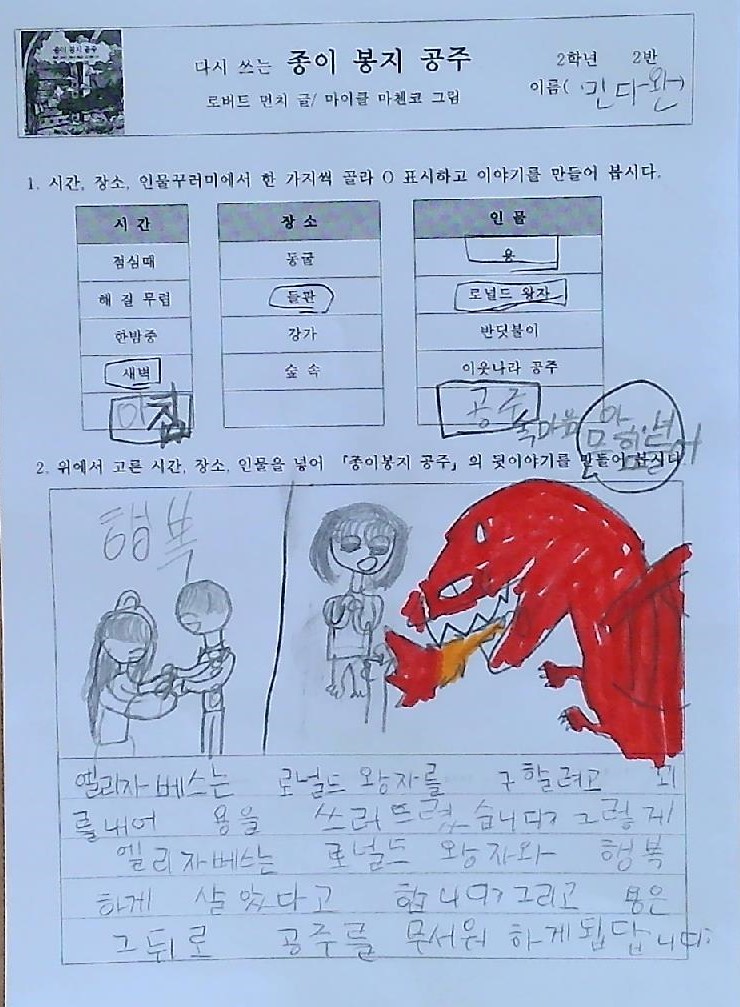 종이 봉지 공주
다시 쓰는 종이 봉지 공주
로버트 먼치 글/ 마이클 마첸코 그림
2학년 2반
이름( )
1. 시간, 장소, 인물꾸러미에서 한 가지씩 골라 O 표시하고 이야기를 만들어 봅시다.
시 간 장 소 인 물
점심때 동굴 용
해 질 무렵 들판 로널드 왕자
한밤중 강가 반딧불이
새벽 숲 속 이웃나라 공주
아침 공주
속마음
2. 위에서 고른 시간, 장소, 인물을 넣어 「종이봉지 공주」의 뒷이야기를 만들어 봅시다
행복
엘리자베스는 로널드 왕자를 구할려고 꾀
를내어 용을 쓰러뜨렸습니다 그렇게
엘리자베스는 로널드 왕자와 행복
하게 살았다고 합니다 그리고 용은
그뒤로 공주를 무서워 하게됩답니다